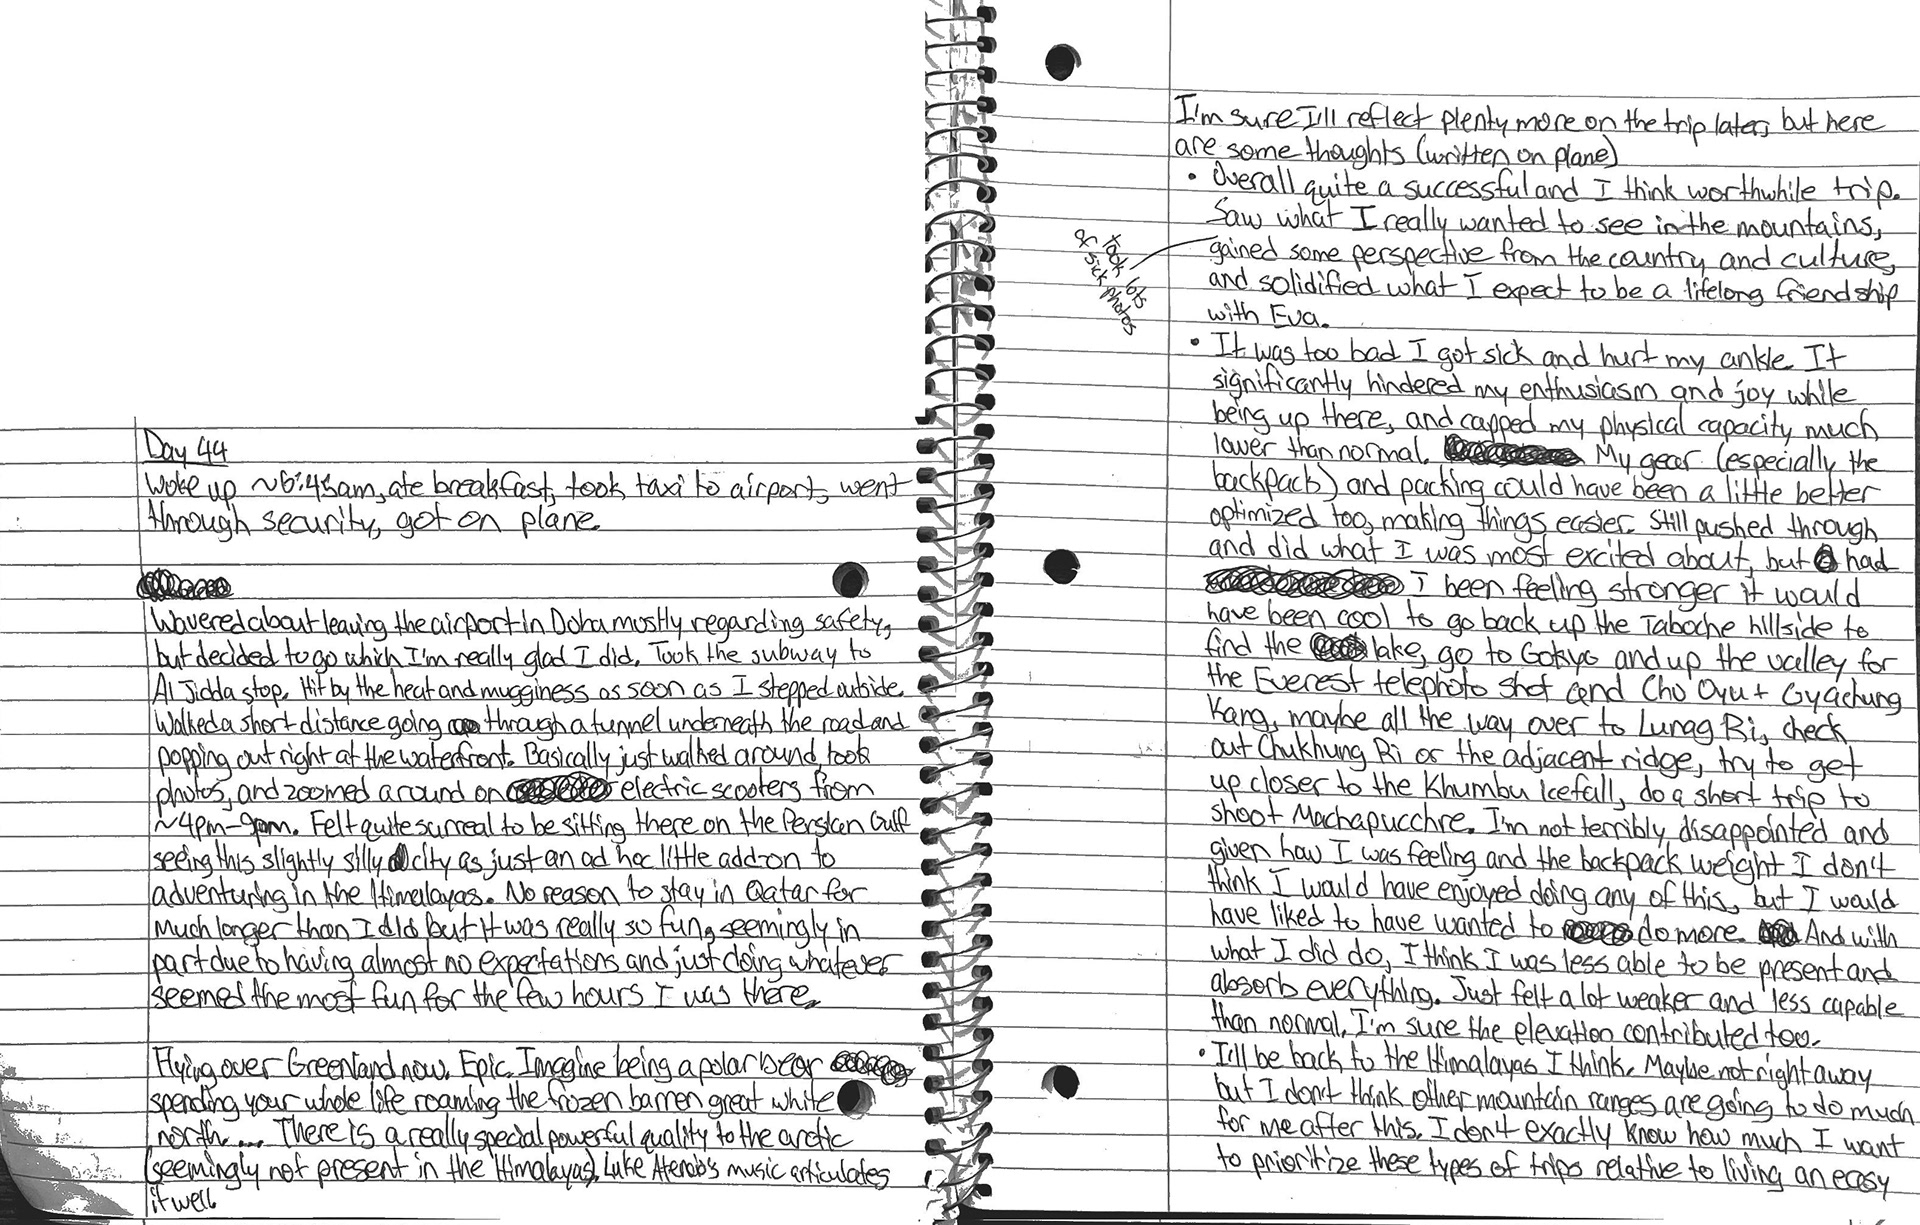 Day 44
Woke up ~6:45am, ate breakfast, took taxi to airport, went
through security, got on plane.
Wavered about leaving the airport in Doha mostly regarding safety,
but decided to go which I'm really glad I did. Took the subway to
Al Jidda stop. Hit by the heat and mugginess as soon as I stepped outside.
Walked a short distance going through a tunnel underneath the road and
popping out right at the waterfront. Basically just walked around, took
photos, and zoomed around on electric scooters from
~4pm-9pm. Felt quite surreal to be sitting there on the Persian Gulf
seeing this slightly silly city as just an ad hoc little add-on to
adventuring in the Himalayas. No reason to stay in Qatar for
much longer than I did but it was really so fun, seemingly in
part due to having almost no expectations and just doing whatever
seemed the most fun for the few hours I was there.
Flying over Greenland now. Epic. Imagine being a polar bear
spending your whole life roaming the frozen barren great white
north.... There is a really special powerful quality to the arctic
(seemingly not present in the Himalayas). Luke music articulates
it well
I'm sure I'll reflect plenty more on the trip later, but here
are some thoughts (written on plane)
• Overall quite a successful and I think worthwhile trip.
Saw what I really wanted to see in the mountains,
took lots
of sick photos
gained some perspective from the country and culture,
and solidified what I expect to be a lifelong friendship
with Eva.
• It was too bad I got sick and hurt my ankle. It
significantly hindered my enthusiasm and joy while
being up there, and capped my physical capacity much
lower than normal. My gear (especially the
backpack) and packing could have been a little better
optimized too, making things easier. Still pushed through
and did what I was most excited about, but had
I been feeling stronger it would
have been cool to go back up the Taboche hillside to
find the lake, go to Gokyo and up the valley for
the Everest telephoto shot and Cho Oyu + Gyachung
Kang, maybe all the way over to Lunag Ri, check
out Chukhung Ri or the adjacent ridge, try to get
up closer to the Khumbu Icefall, do a short trip to
shoot Machapucchre. I'm not terribly disappointed and
given how I was feeling and the backpack weight I don't
think I would have enjoyed doing any of this, but I would
have liked to have wanted to do more. And with
what I did do, I think I was less able to be present and
absorb everything. Just felt a lot weaker and less capable
than normal, I'm sure the elevation contributed too.
• I'll be back to the Himalayas I think. Maybe not right away
but I don't think other mountain ranges are going to do much
for me after this. I don't exactly know how much I want
to prioritize these types of trips relative to living an easy